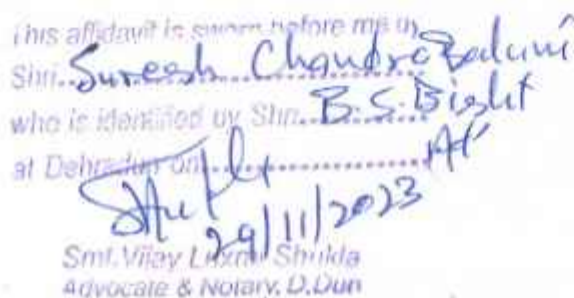 This affidavit is sworn before me by
Shri..Suresh Chandra Baluni
who is identified by Shri.. B.S. Bisht
at Dehradun on.................... Adv
29/11/2023
Smt. Vijay Laxmi Shukla
Advocate & Notary, D.Dun